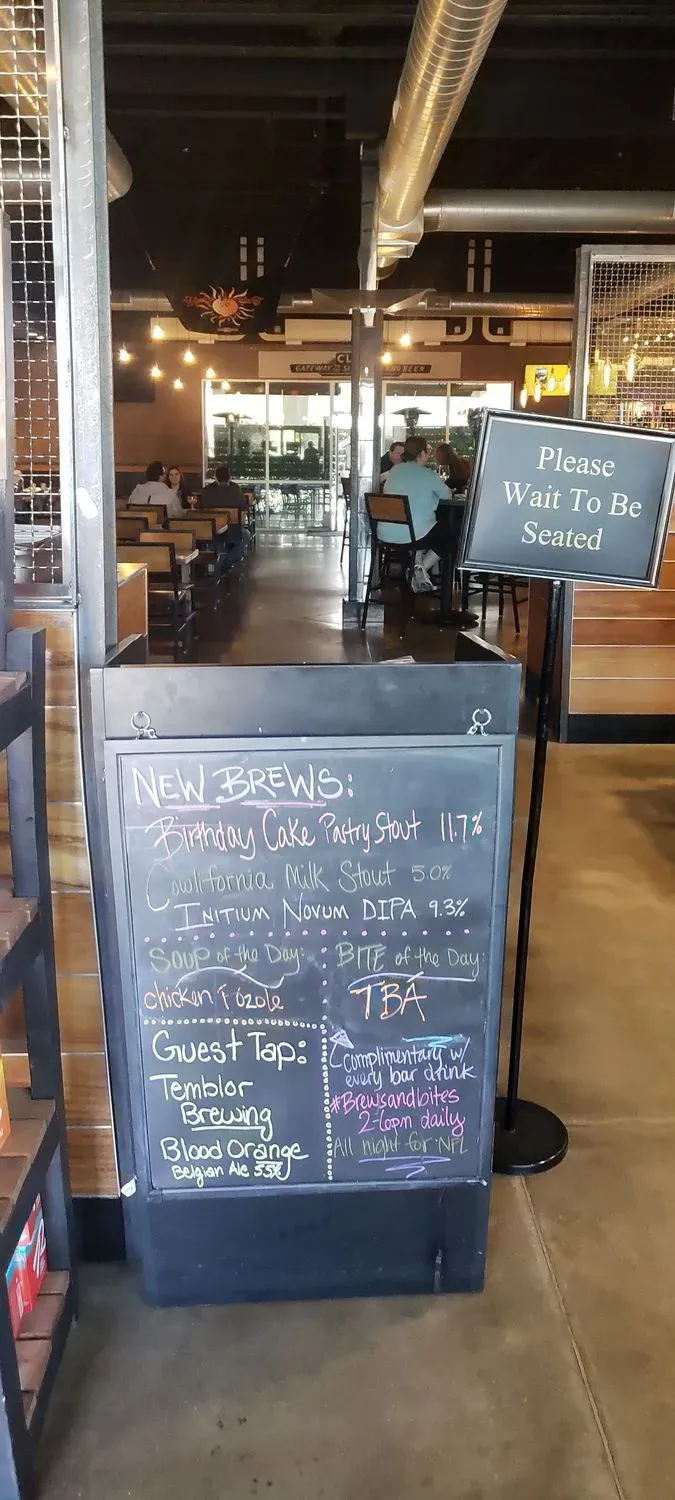 Please
Wait To Be
Seated
NEW BREWS:
Birthday Cake Pastry Stout 11.7%
Cowlifornia Milk Stout 5.0%
INITIUM NOVUM DIPA 9.3%
SOUP of the Day:
chicken Pozole
BITE of the Day:
TBA
Guest Tap:
Temblor
Brewing
Blood Orange
Belgian Ale 5.5%
complimentary w/
every bar drink
#Brewsandbites
2-6pm daily
All night for NFL